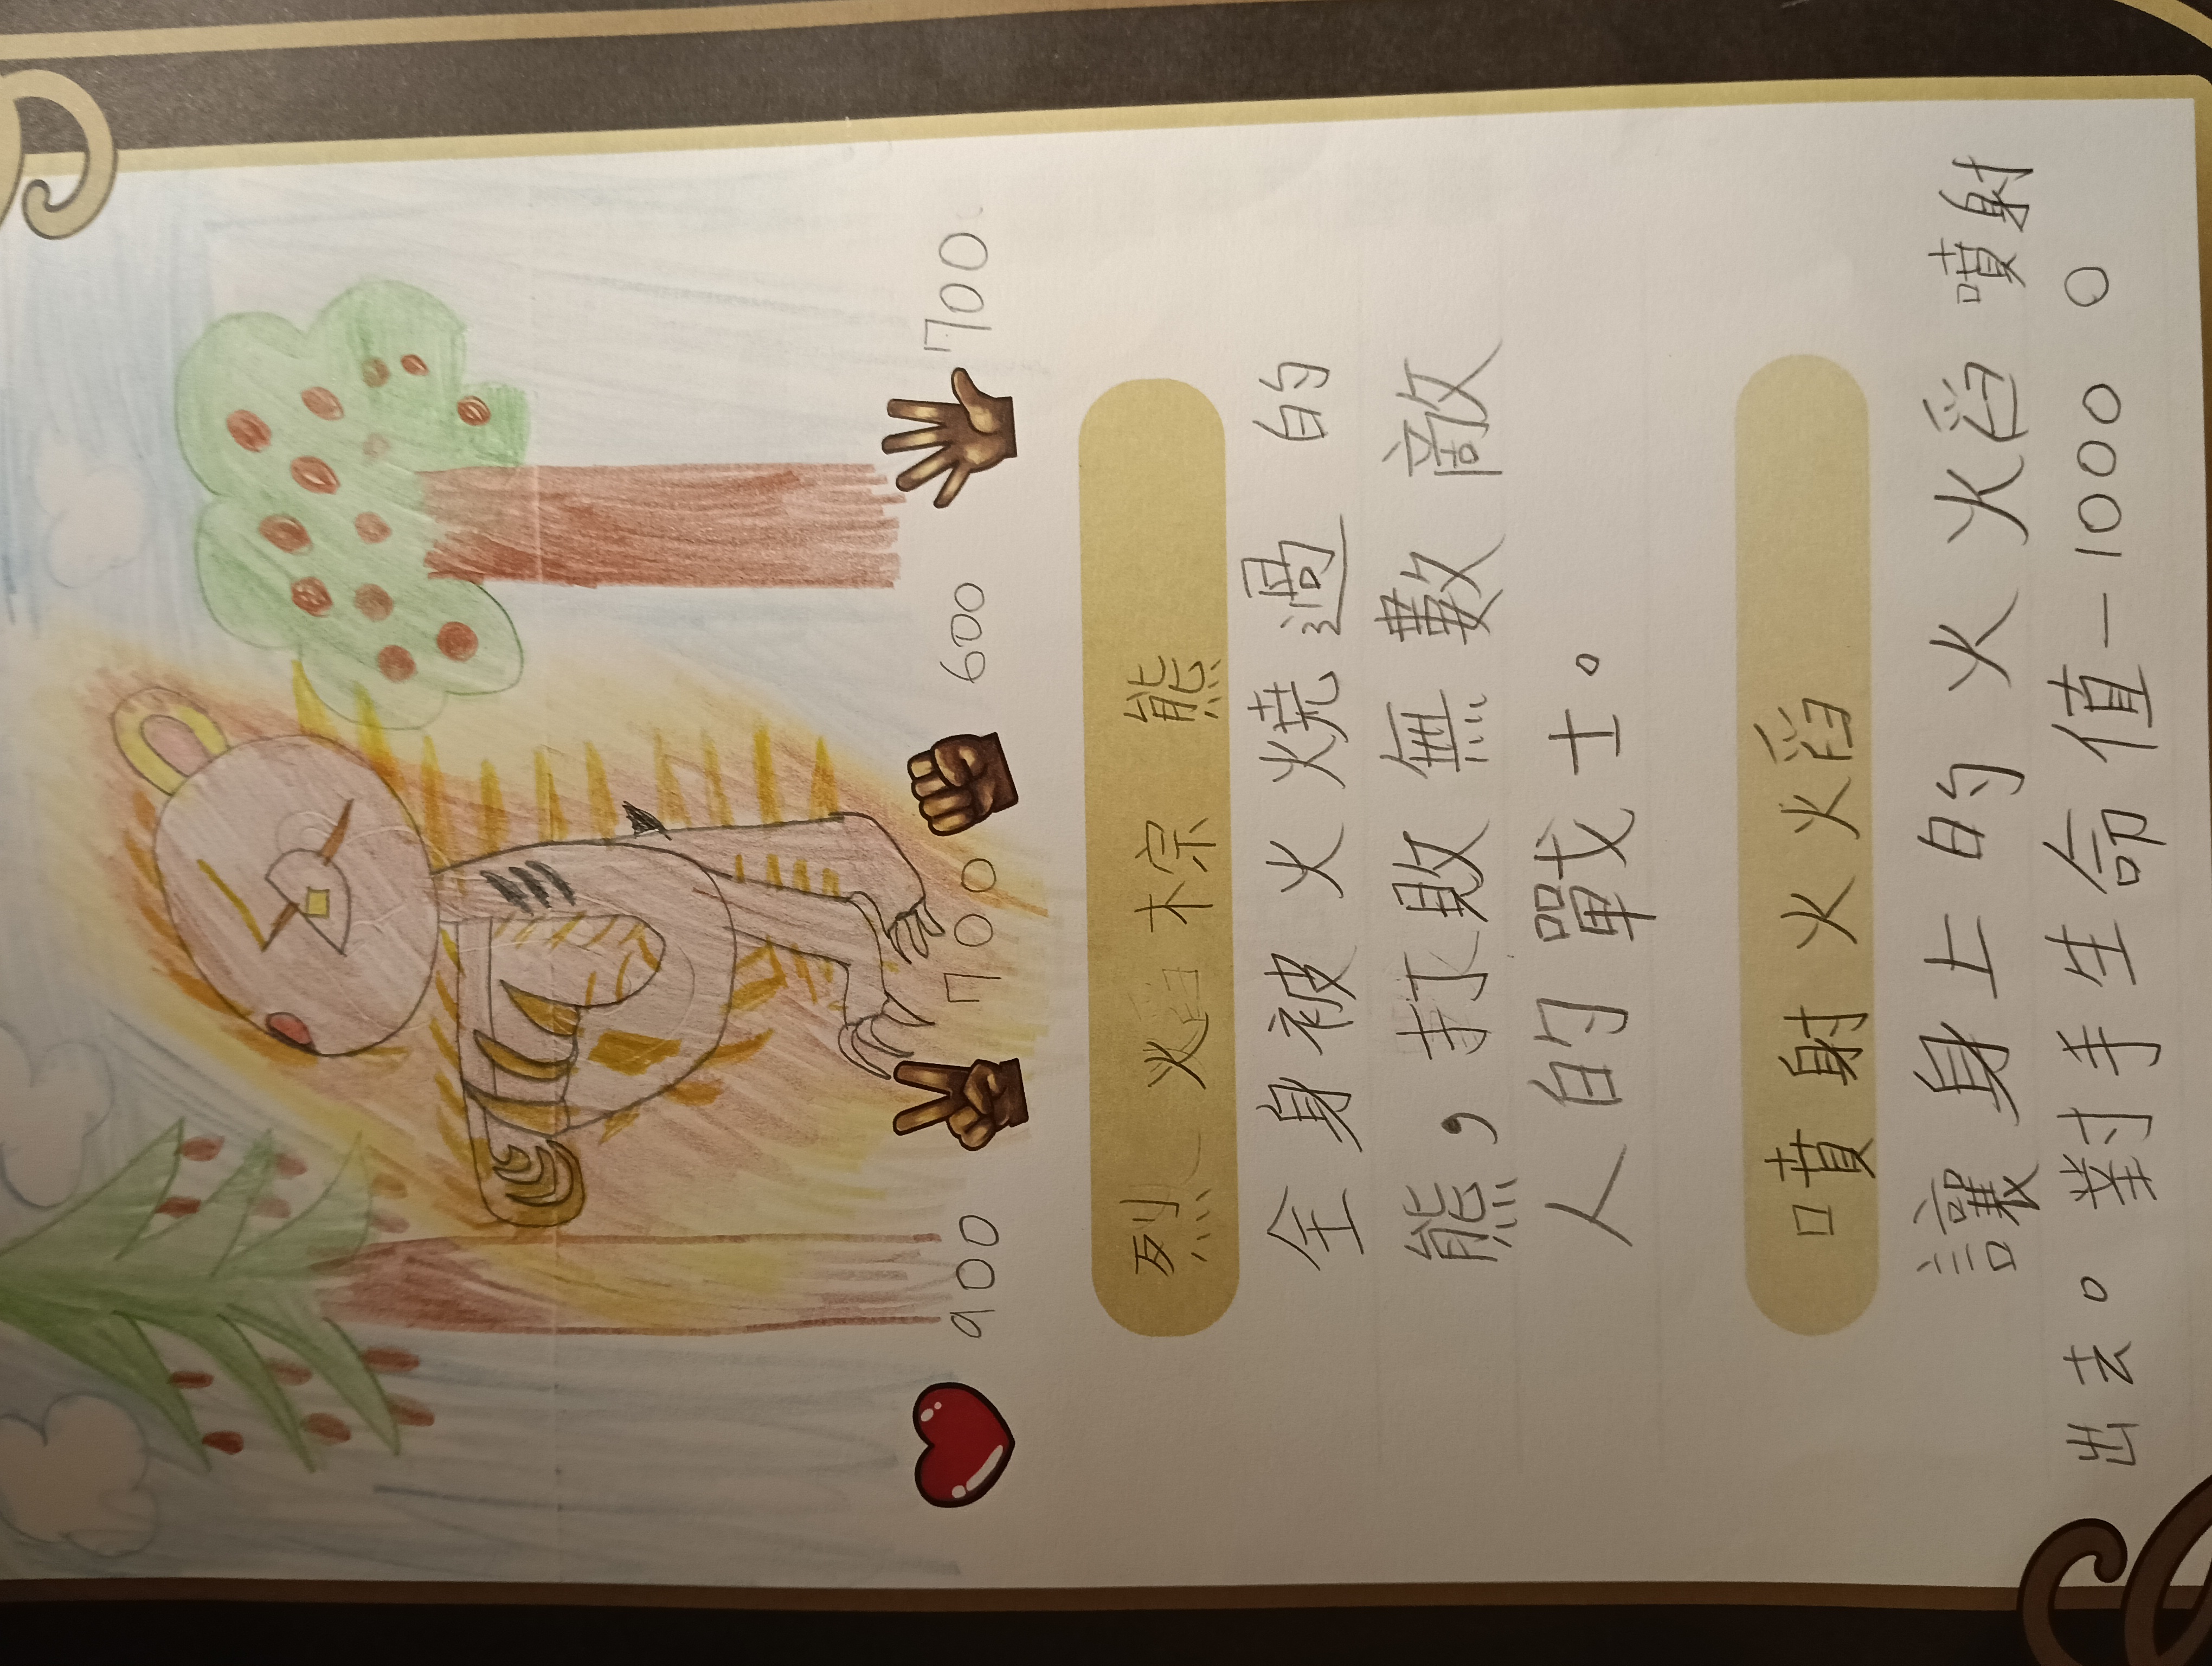 900 700 600 700
烈焰棕熊
全身被火燒過的
熊，打敗無數敵
人的戰士。
噴射火焰
讓身上的火火焰噴射
出去。對手生命值－1000 0